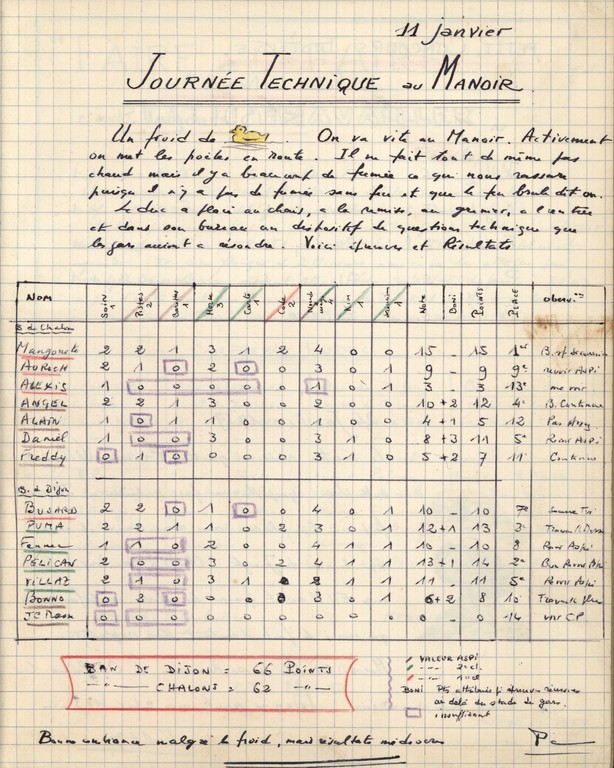 11 janvier
JOURNÉE TECHNIQUE au MANOIR
Un froid de . On va vite au Manoir. Activement
on met les poêles en route. Il ne fait tout de même pas
chaud mais il y a beaucoup de fumée ce qui nous rassure
puisqu'il n'y a pas de fumée sans feu et que le feu brule dit on.
Le duc a placé au chais, a la remise, au grenier, a l'entrée
et dans son bureau un dispositif de questions technique que
les gars auront a résoudre. Voici épreuves et Résultats
NOM Soin 1 Pistes 2 3 Carte 1 Code 2 4 Kim 1 1 Note Boni POINTS PLACE observ.on
B de Chalon
Mangouste 2 2 1 3 1 2 4 0 0 15 - 15 1er
AUROCH 2 1 0 2 0 0 3 1 0 9 - 9 9e revoir ASPI
ALEXIS 1 0 0 0 0 0 1 0 3 - 3 13e me voir
ANGEL 2 2 1 3 0 0 2 0 0 10 +2 12 4e B. Continue
ALAIN 1 0 1 0 0 0 3 0 0 4 +1 5 12
Daniel 1 0 0 3 0 0 3 1 0 8 +3 11 5e Revoir ASPI
Freddy 0 1 0 0 0 0 3 1 0 5 +2 7 11 Continue
B. d Dijon
BUSARD 2 2 0 1 0 0 4 0 1 10 - 10 7e
PUMA 2 2 1 1 0 2 3 0 1 12 +1 13 3e
Fennec 1 1 0 2 0 0 4 1 1 10 - 10 8 Revoir Aspi
PÉLICAN 2 0 0 3 0 2 4 1 1 13 +1 14 2e Bon Revoir Aspi
VILLAZ 2 1 0 3 1 1 1 11 - 11 5e Revoir Aspi
BONNO 0 0 0 3 0 1 6 +2 8 10
0 0 0 0 0 0 0 0 0 0 0 14 voir CP
BAN DE DIJON = 66 POINTS
-"- CHALONS = 62 -"-
VALEUR ASPI
-"- 2e cl.
-"- 1e cl
BONI Pts attribués si épreuve réussie
au delà du stade du gars.
insuffisant
Bonne ambiance malgré le froid, mais résultats médiocres